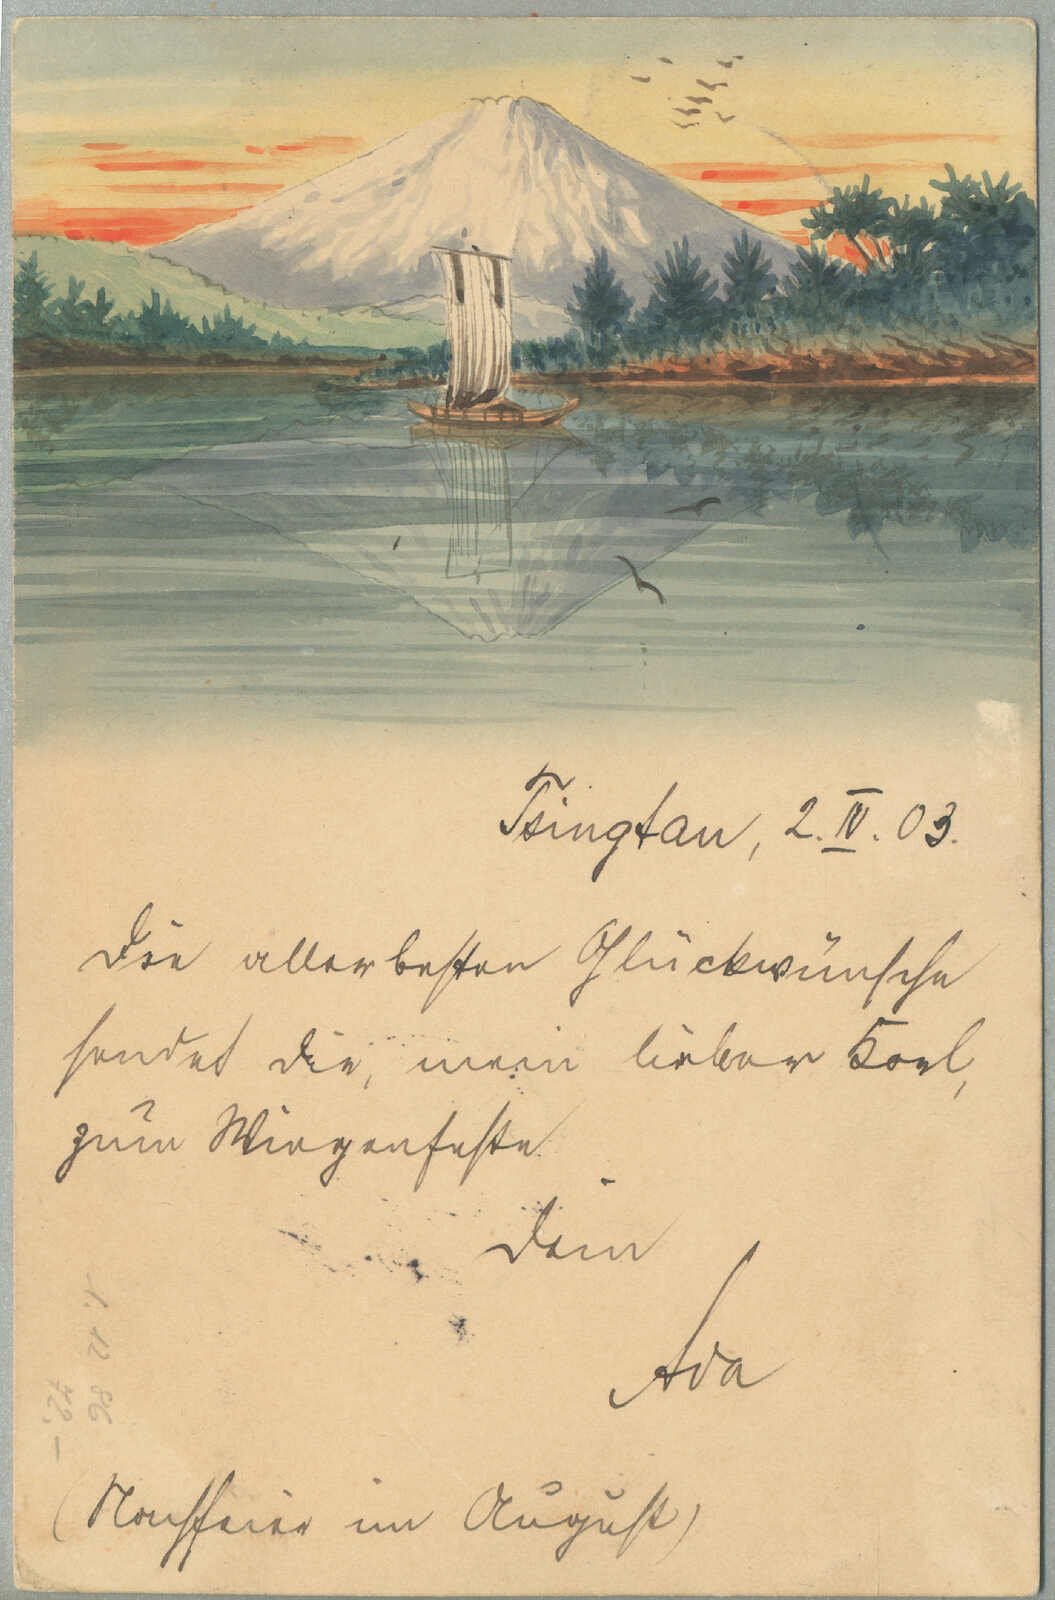 Tsingtau, 2. IV. 03.
Die allerbesten Glückwünsche
sendet Dir, mein lieber Karl,
zum Wiegenfeste
Dein
Ada
(Nachfeier im August)
1. 12 86
42,–